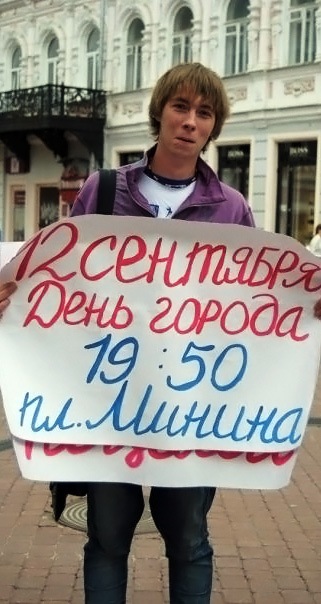 12 сентября
День города
19:50
пл. Минина
BOSS